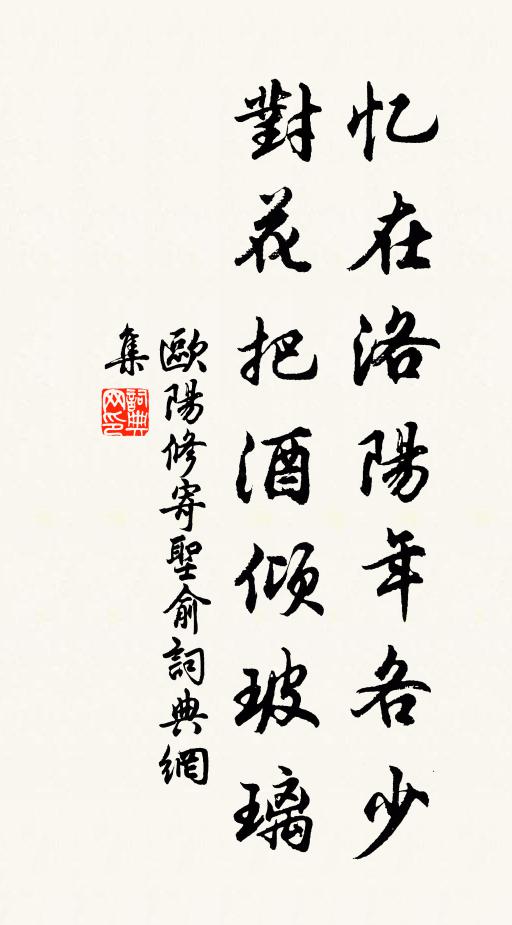 忆在洛陽年各少
對花把酒傾玻璃
歐陽修寄聖俞詞典網
集
詞典网印